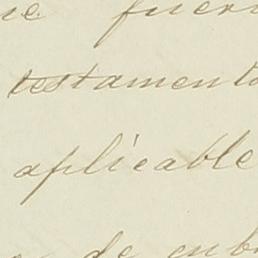 fuer
testamento
aplicable
de cub